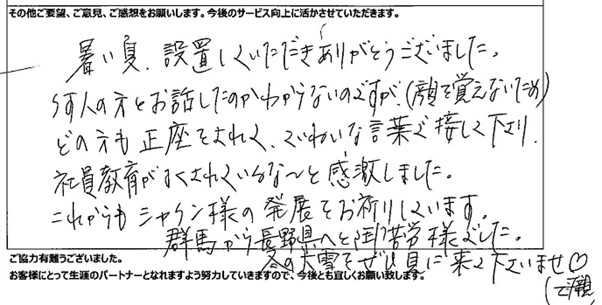 その他ご要望、ご意見、ご感想をお願いします。今後のサービス向上に活かさせていただきます。
暑い夏、設置していただきありがとうございました。
何人の方とお話したのかわからないのですが、(顔を覚えないため)
どの方も正座をされて、ていねいな言葉で接して下さり、
社員教育がよくされているな～と感激しました。
これからもシャケン様の発展をお祈りしています。
群馬から長野県へと御苦労様でした。
ご協力有難うございました。
冬の大雪をぜひ見に来て下さいませ♡
お客様にとって生涯のパートナーとなれますよう努力していきますので、今後とも宜しくお願い致します。